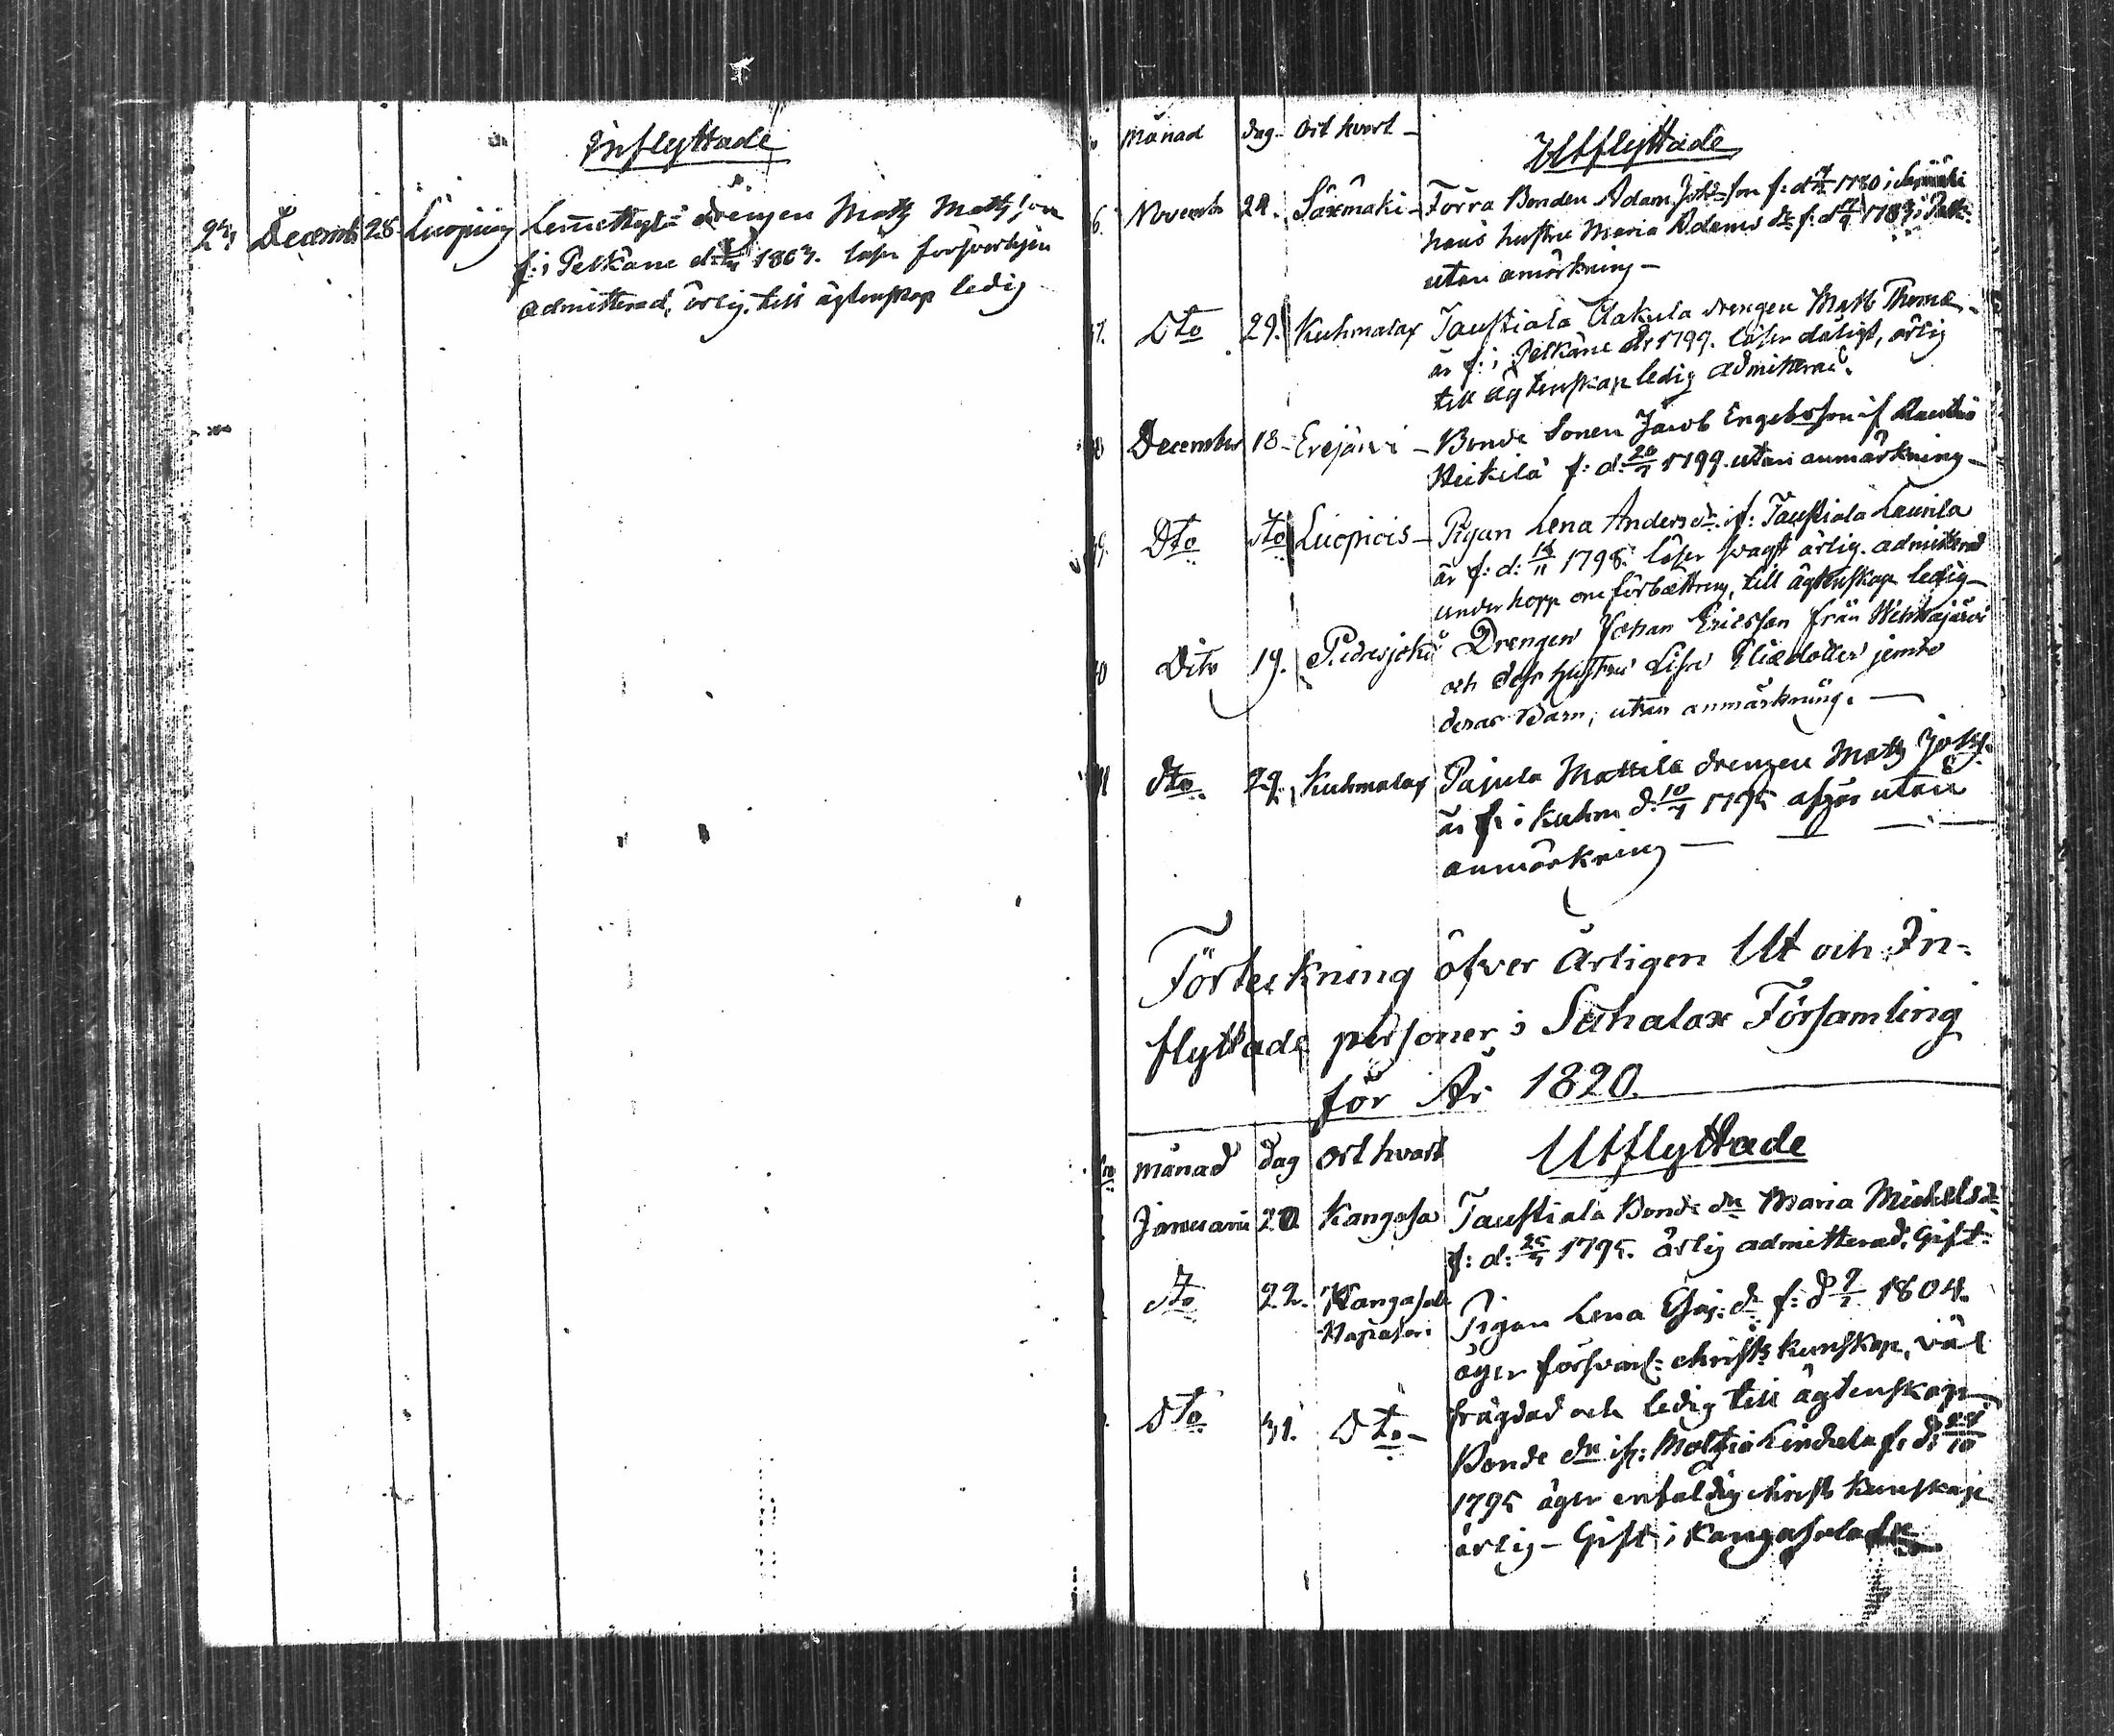 Inflyttade
Decemb 28 drengen Matz Matzson
f: i Pelkäne d: 1803. läser försvarligen
admitterad, ärlig, till ägtenskap ledig
Månad dag Ort hvart
Utflyttade
6. Novembr Säxmäki Förra Bonden Adam f: d 1780 i
hans hustru Maria Adams dr f: d
utan anmärkning
7. Dto 29. Kuhmalax Taustiala drengen Matts
är f: i Pelkäne år 1799. läser dåligt, ärlig
till ägtenskap ledig admitterad.
8 December 18 Erejärvi Bonde Sonen Jacob if
Heikilä f: d: 20/7 1799. utan anmärkning
9. Dto dto Luopiois Pigan Lena Anders dr. if: Taustiala Laurila
är f: d: 1798. läser svagt ärlig. admitterad
under hopp om förbättring, till ägtenskap ledig
Dito 19. Padasjoki Drengen Johan Ericsson från Wehkajärvi
och dess hustru Lisa jemte
deras Barn, utan anmärkning.
dto 29. Kuhmalax Pajula Mattila drengen Matz
är f: i Kuhm d: 10/7 1795 utan
anmärkning
Förteckning öfver Årligen Ut och In-
flyttade personer i Sahalax Församling
för År 1820.
Månad dag Ort hvart Utflyttade
Januarii 20 Kangasa Taustiala Bonde dr Maria Michels dr
f: d: 1795. ärlig admitterad, Gift
dto 22. Kangasala Pigan Lena dr f: d 1804.
äger försvarl: christ: kunskap, väl
frägdad och ledig till ägtenskap
Dto 31. Dto Bonde dr if: f: d:
1795 äger enfaldig christ: kunskap
ärlig – Gift i Kangasala